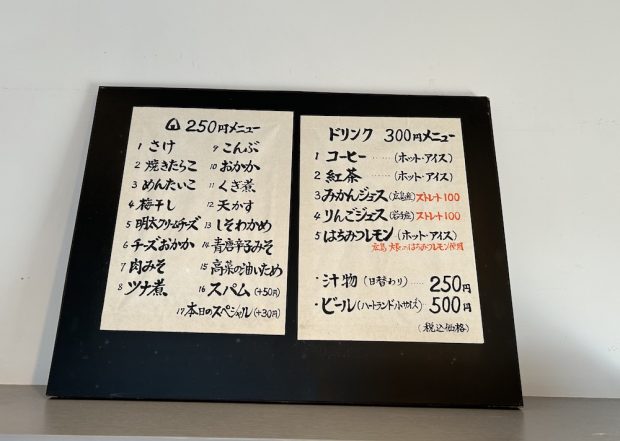 250円メニュー
1 さけ
2 焼きたらこ
3 めんたいこ
4 梅干し
5 明太クリームチーズ
6 チーズおかか
7 肉みそ
8 ツナ煮
9 こんぶ
10 おかか
11 くぎ煮
12 天かす
13 しそわかめ
14 青唐辛子みそ
15 高菜の油いため
16 スパム(+50円)
17 本日のスペシャル(+30円)
ドリンク 300円メニュー
1 コーヒー……(ホット・アイス)
2 紅茶……(ホット・アイス)
3 みかんジュース(広島産)ストレート100
4 りんごジュース(岩手産)ストレート100
5 はちみつレモン(ホット・アイス)
広島 大長のはちみつレモン使用
・汁物(日替わり)……250円
・ビール(ハートランド小サイズ)500円
(税込価格)